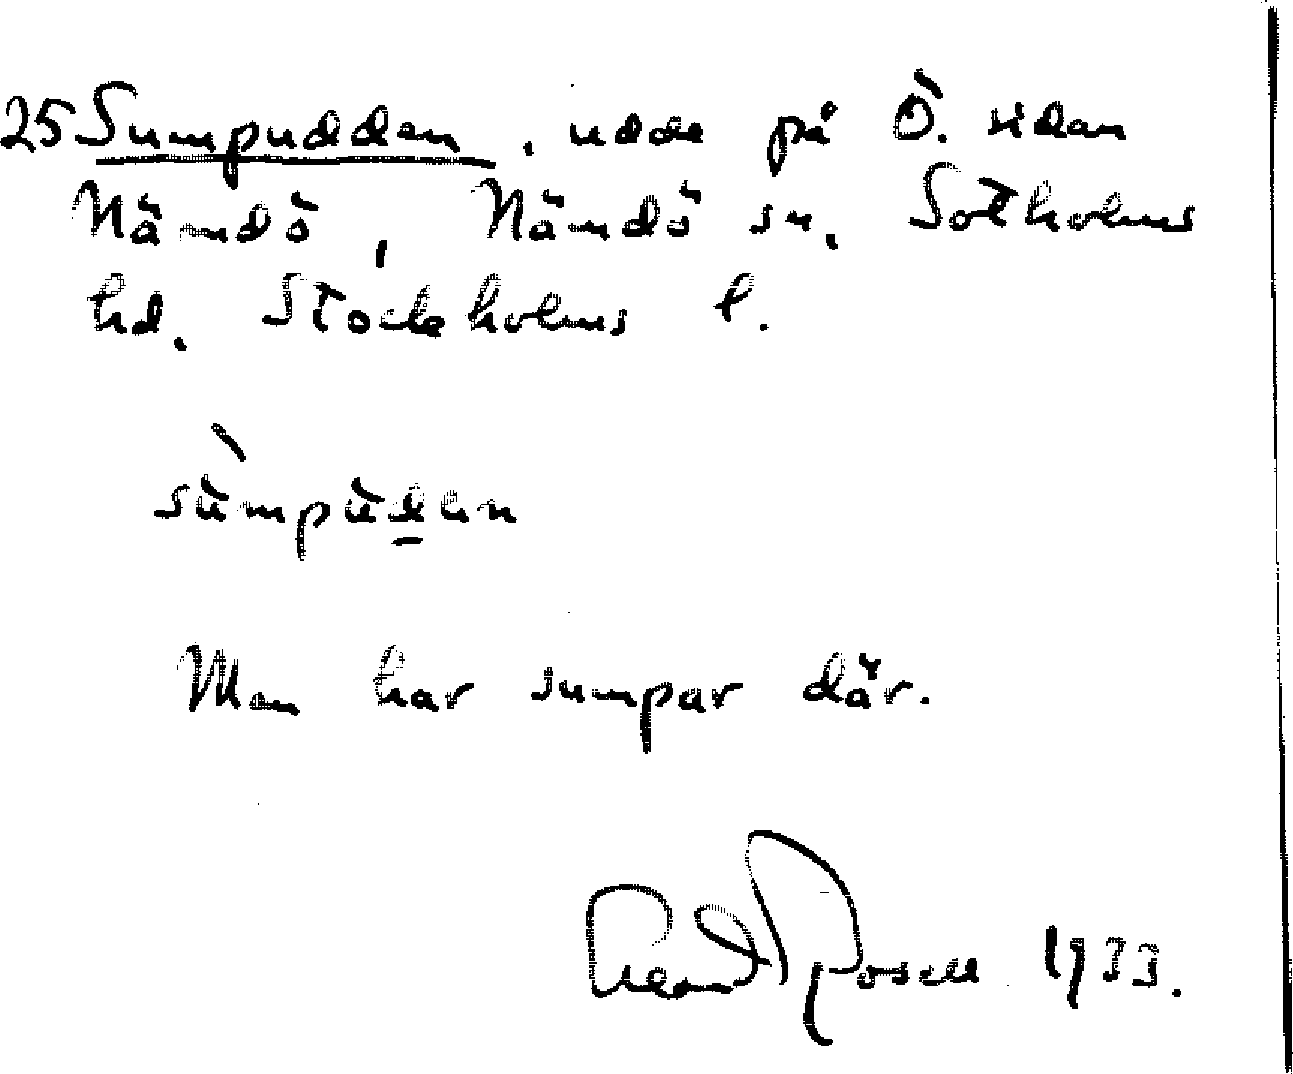 25 Sumpudden, udde på Ö. sidan
Nämdö, Nämdö sn, Sotholms
hd. Stockholms l.
sùmpùden
Man har sumpar där.
Rosell 1933.